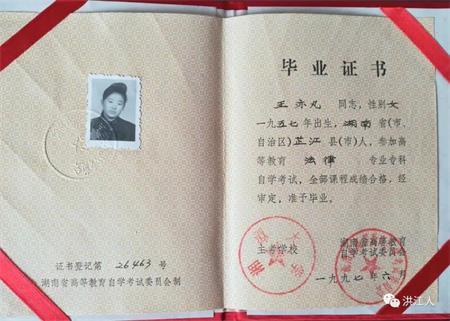 证书登记第 26463 号
湖南省高等教育自学考试委员会制
毕业证书
王亦凡 同志，性别女
一九五七年出生，湖南省(市、
自治区)芷江县(市)人，参加高
等教育 法律 专业专科
自学考试，全部课程成绩合格，经
审定，准予毕业。
主考学校
湖南省高等教育
自学考试委员会
一九九七年六
洪江人